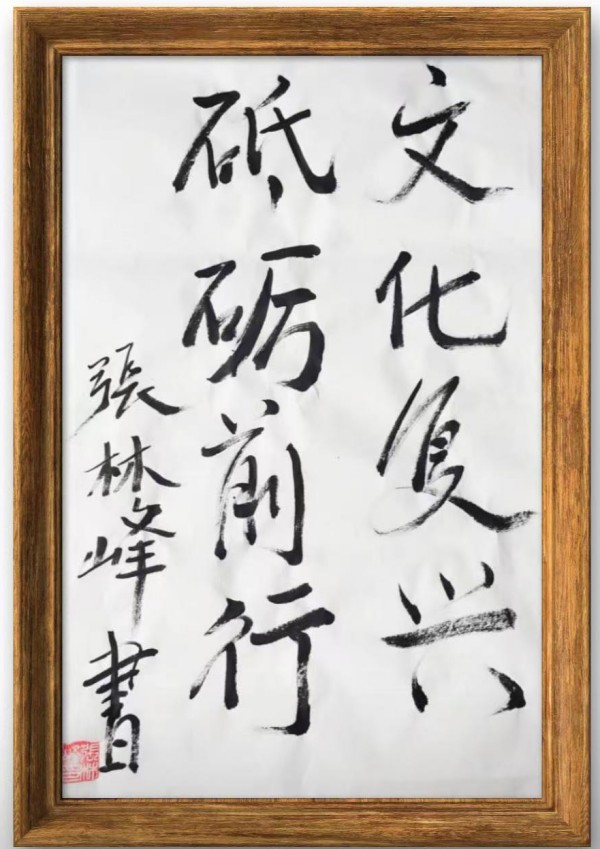 文化复兴
砥砺前行
張林峰書